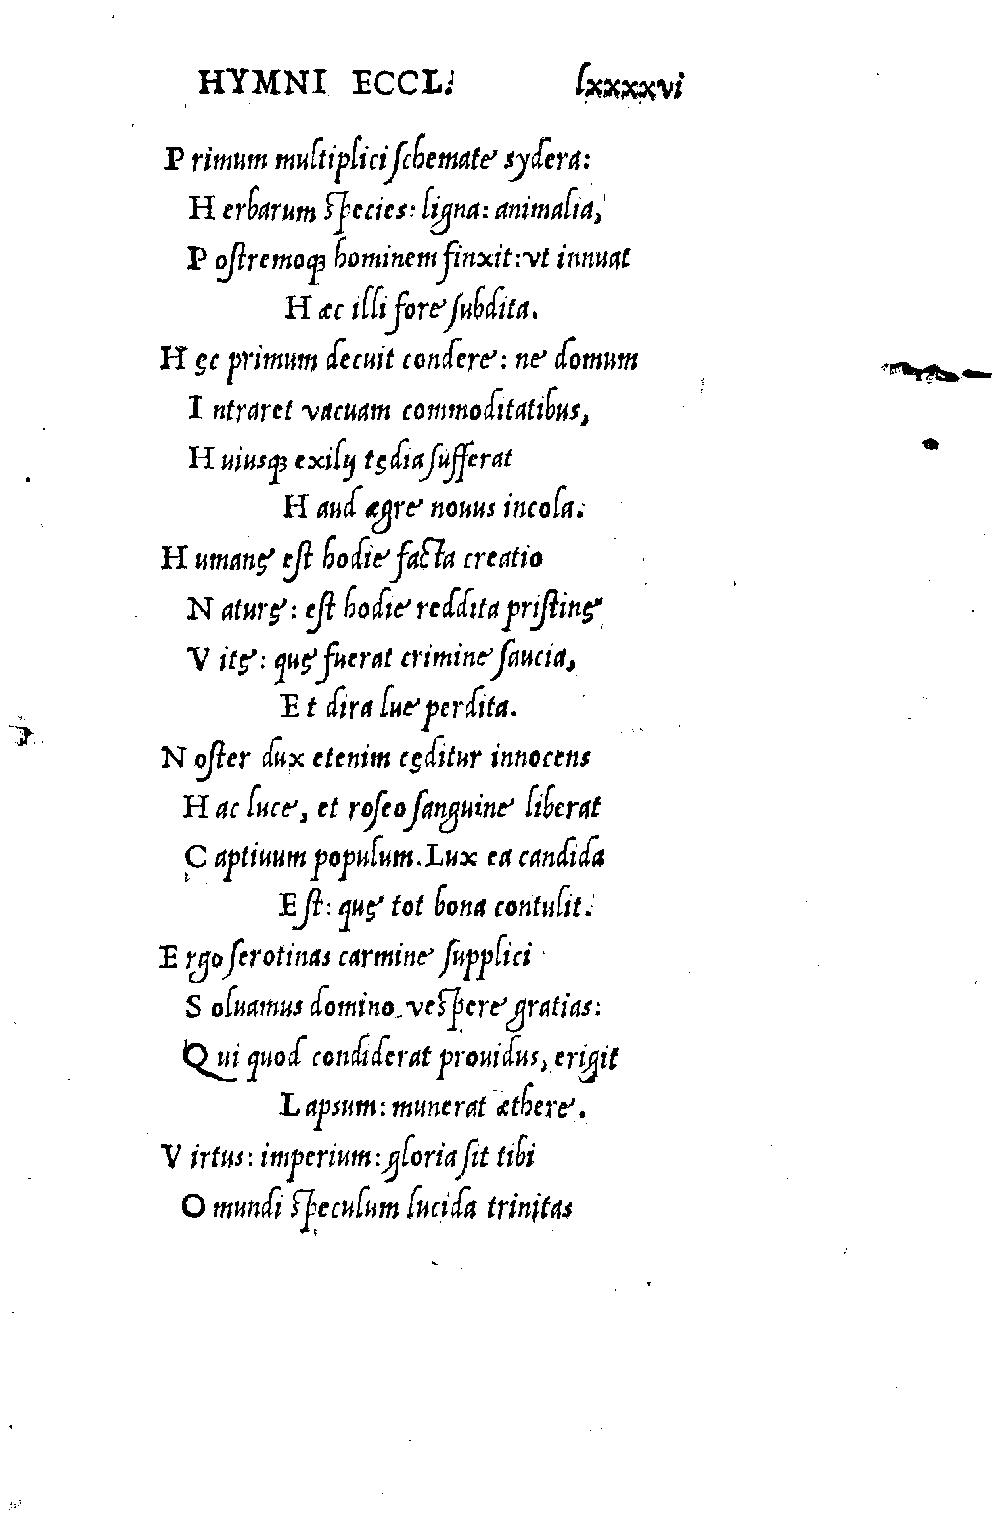 HYMNI ECCL. lxxxxvi
P rimum multiplici ſchemate sydera:
H erbarum ſpecies: ligna: animalia,
P oſtremoqꝫ hominem finxit: vt innuat
H æc illi fore ſubdita.
H ęc primum decuit condere: ne domum
I ntraret vacuam commoditatibus,
H uiusqꝫ exilij tędia ſufferat
H aud ægre nouus incola.
H umanę eſt hodie facta creatio
N aturę: eſt hodie reddita priſtinę
V itę: quę fuerat crimine ſaucia,
E t dira lue perdita.
N oſter dux etenim cęditur innocens
H ac luce, et roſeo ſanguine liberat
C aptiuum populum. Lux ea candida
E ſt: quę tot bona contulit.
E rgo ſerotinas carmine ſupplici
S oluamus domino veſpere gratias:
Q ui quod condiderat prouidus, erigit
L apsum: munerat æthere.
V irtus: imperium: gloria ſit tibi
O mundi ſpeculum lucida trinitas